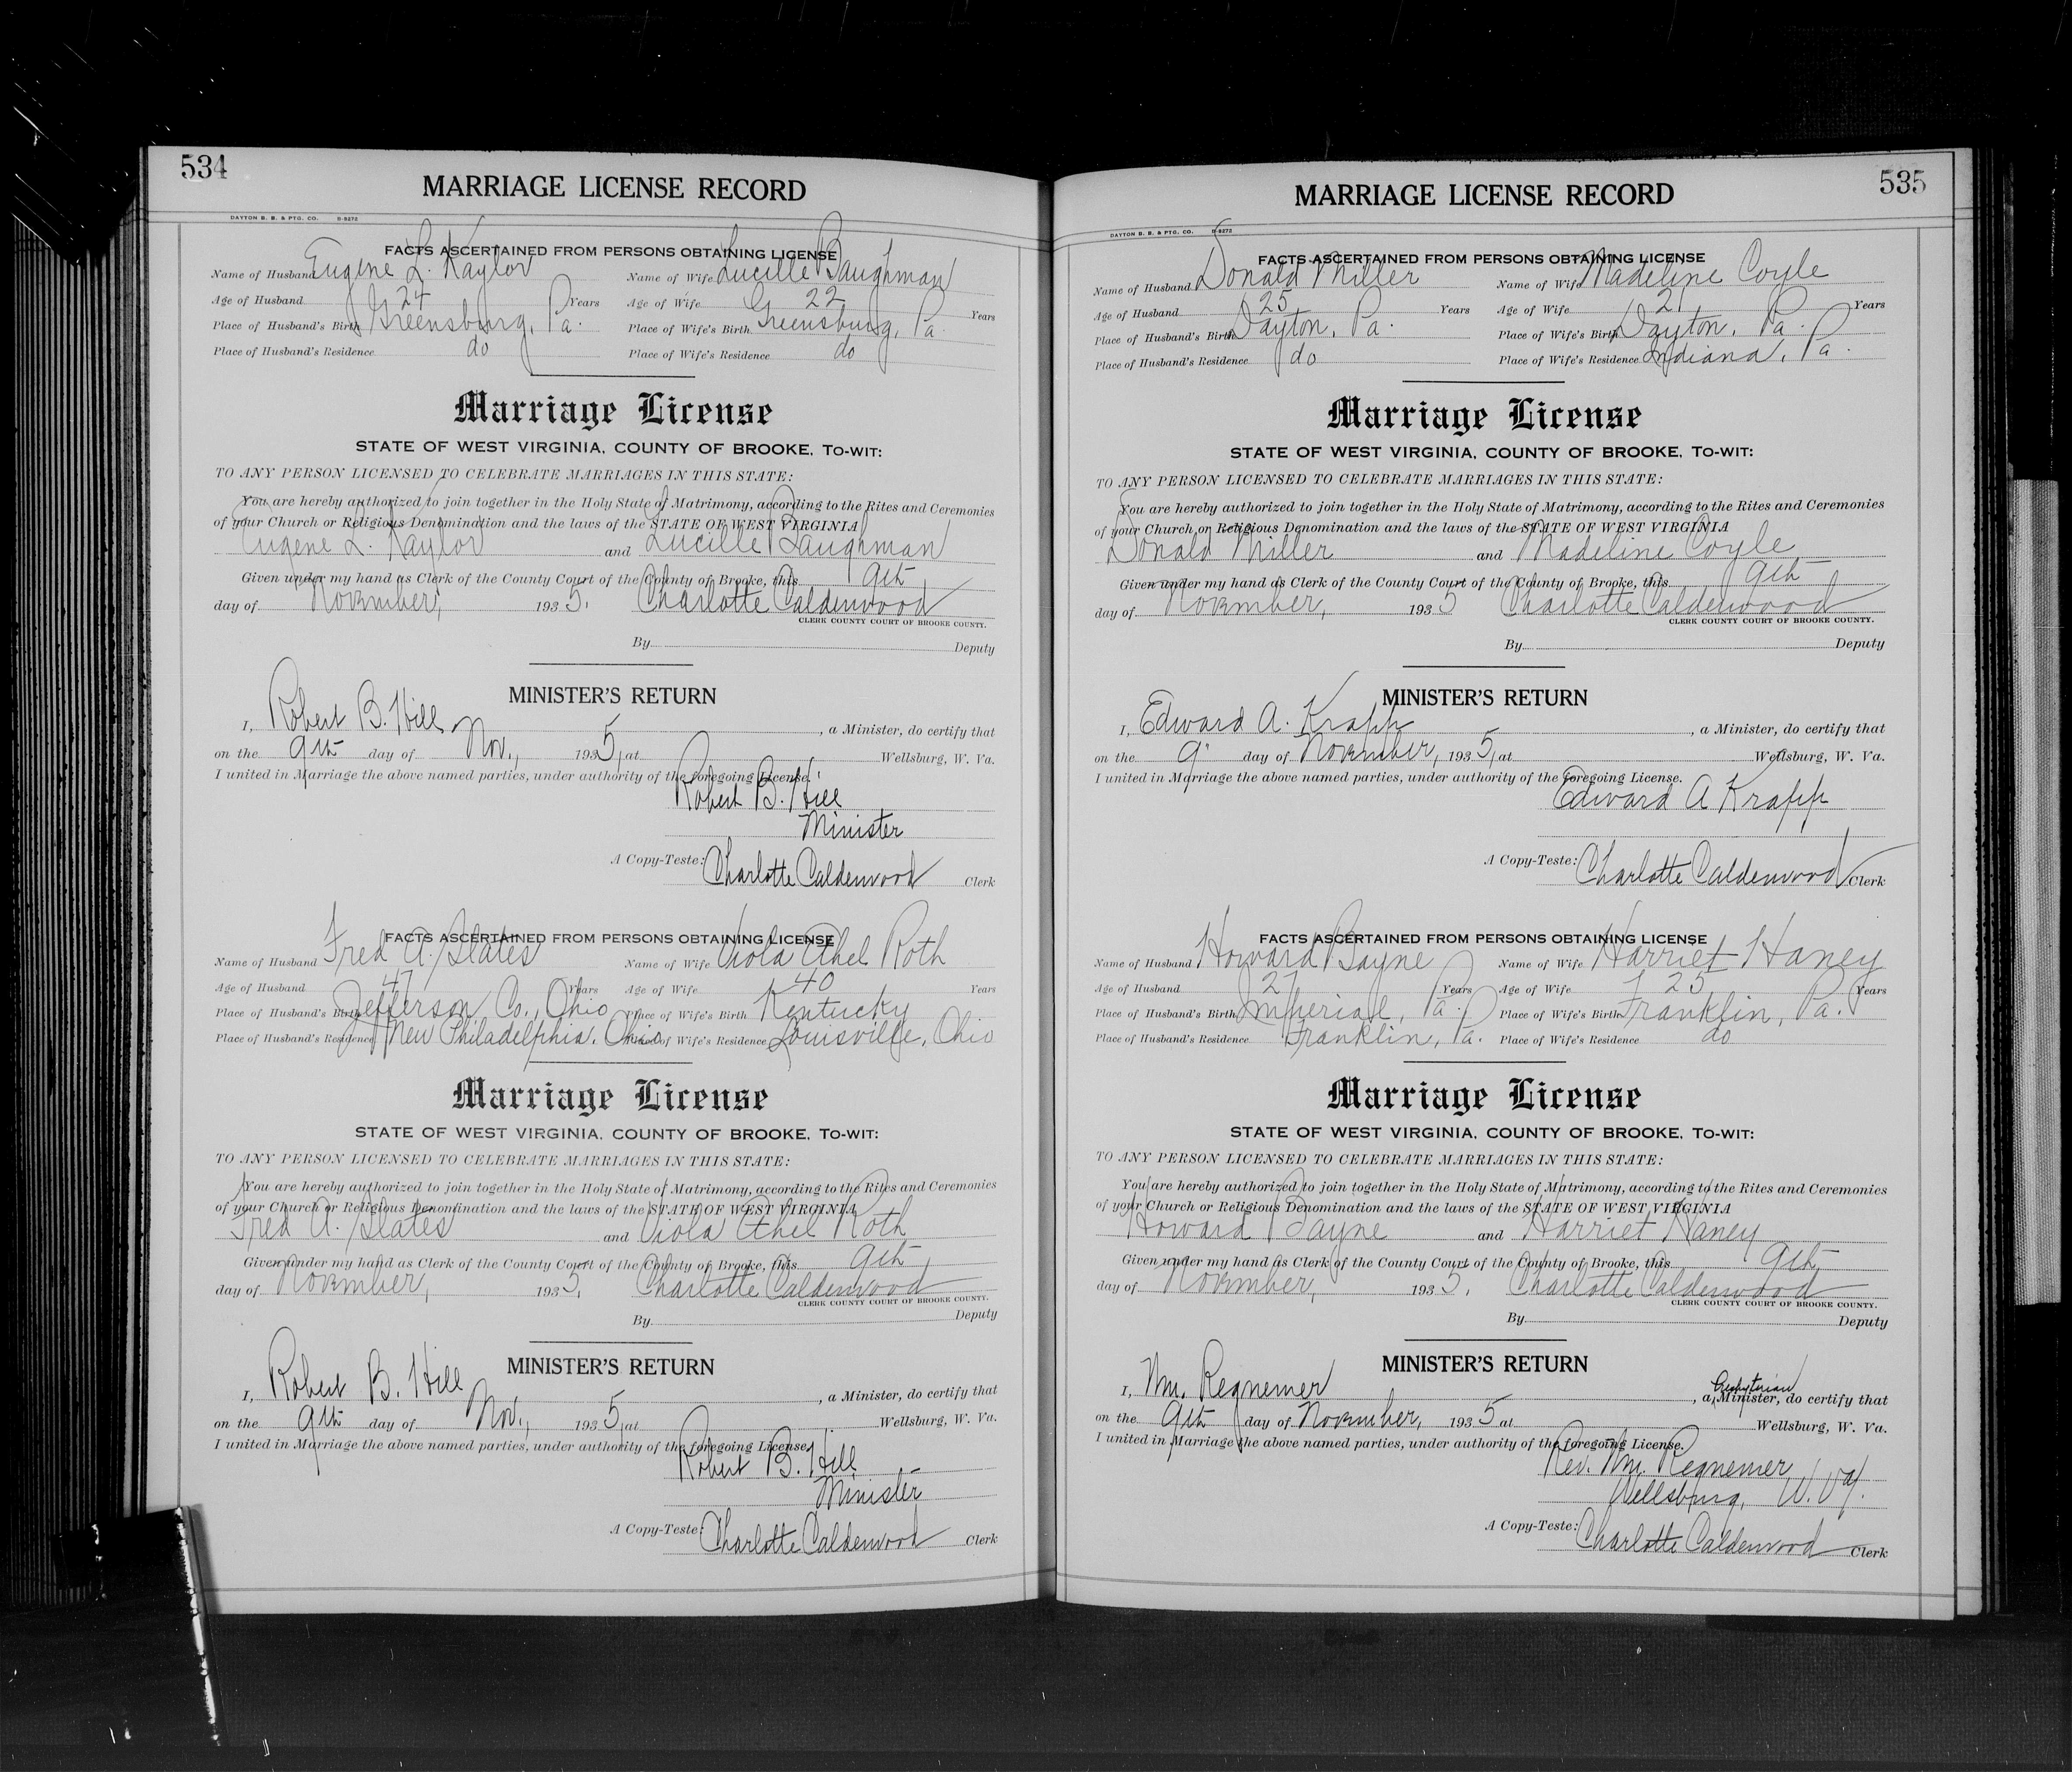 534
MARRIAGE LICENSE RECORD
DAYTON B. B. & PTG. CO. D-8272
FACTS ASCERTAINED FROM PERSONS OBTAINING LICENSE
Name of Husband Eugene L. Kaylor Name of Wife Lucille Baughman
Age of Husband 24 Years Age of Wife 22 Years
Place of Husband's Birth Greensburg, Pa. Place of Wife's Birth Greensburg, Pa.
Place of Husband's Residence do Place of Wife's Residence do
Marriage License
STATE OF WEST VIRGINIA, COUNTY OF BROOKE, To-wit:
TO ANY PERSON LICENSED TO CELEBRATE MARRIAGES IN THIS STATE:
You are hereby authorized to join together in the Holy State of Matrimony, according to the Rites and Ceremonies
of your Church or Religious Denomination and the laws of the STATE OF WEST VIRGINIA
Eugene L. Kaylor and Lucille Baughman
Given under my hand as Clerk of the County Court of the County of Brooke, this 9th
day of November, 1935. Charlotte Caldenwood
CLERK COUNTY COURT OF BROOKE COUNTY.
By Deputy
MINISTER'S RETURN
I, Robert B. Hill, a Minister, do certify that
on the 9th day of Nov., 1935, at Wellsburg, W. Va.
I united in Marriage the above named parties, under authority of the foregoing License.
Robert B. Hill
Minister
A Copy-Teste: Charlotte Caldenwood Clerk
FACTS ASCERTAINED FROM PERSONS OBTAINING LICENSE
Name of Husband Fred A. Slates Name of Wife Viola Ethel Roth
Age of Husband 47 Years Age of Wife 40 Years
Place of Husband's Birth Jefferson Co., Ohio Place of Wife's Birth Kentucky
Place of Husband's Residence New Philadelphia, Ohio Place of Wife's Residence Louisville, Ohio
Marriage License
STATE OF WEST VIRGINIA, COUNTY OF BROOKE, To-wit:
TO ANY PERSON LICENSED TO CELEBRATE MARRIAGES IN THIS STATE:
You are hereby authorized to join together in the Holy State of Matrimony, according to the Rites and Ceremonies
of your Church or Religious Denomination and the laws of the STATE OF WEST VIRGINIA
Fred A. Slates and Viola Ethel Roth
Given under my hand as Clerk of the County Court of the County of Brooke, this 9th
day of November, 1935, Charlotte Caldenwood
CLERK COUNTY COURT OF BROOKE COUNTY.
By Deputy
MINISTER'S RETURN
I, Robert B. Hill, a Minister, do certify that
on the 9th day of Nov., 1935, at Wellsburg, W. Va.
I united in Marriage the above named parties, under authority of the foregoing License.
Robert B. Hill
Minister
A Copy-Teste: Charlotte Caldenwood Clerk
535
MARRIAGE LICENSE RECORD
DAYTON B. B. & PTG. CO. D-8272
FACTS ASCERTAINED FROM PERSONS OBTAINING LICENSE
Name of Husband Donald Miller Name of Wife Madeline Coyle
Age of Husband 25 Years Age of Wife 21 Years
Place of Husband's Birth Dayton, Pa. Place of Wife's Birth Dayton, Pa.
Place of Husband's Residence do Place of Wife's Residence Indiana, Pa.
Marriage License
STATE OF WEST VIRGINIA, COUNTY OF BROOKE, To-wit:
TO ANY PERSON LICENSED TO CELEBRATE MARRIAGES IN THIS STATE:
You are hereby authorized to join together in the Holy State of Matrimony, according to the Rites and Ceremonies
of your Church or Religious Denomination and the laws of the STATE OF WEST VIRGINIA
Donald Miller and Madeline Coyle
Given under my hand as Clerk of the County Court of the County of Brooke, this 9th
day of November, 1935 Charlotte Caldenwood
CLERK COUNTY COURT OF BROOKE COUNTY.
By Deputy
MINISTER'S RETURN
I, Edward A. Krapp, a Minister, do certify that
on the 9" day of November, 1935, at Wellsburg, W. Va.
I united in Marriage the above named parties, under authority of the foregoing License.
Edward A Krapp
A Copy-Teste: Charlotte Caldenwood Clerk
FACTS ASCERTAINED FROM PERSONS OBTAINING LICENSE
Name of Husband Howard Bayne Name of Wife Harriet Haney
Age of Husband 27 Years Age of Wife 25 Years
Place of Husband's Birth Imperial, Pa. Place of Wife's Birth Franklin, Pa.
Place of Husband's Residence Franklin, Pa. Place of Wife's Residence do
Marriage License
STATE OF WEST VIRGINIA, COUNTY OF BROOKE, To-wit:
TO ANY PERSON LICENSED TO CELEBRATE MARRIAGES IN THIS STATE:
You are hereby authorized to join together in the Holy State of Matrimony, according to the Rites and Ceremonies
of your Church or Religious Denomination and the laws of the STATE OF WEST VIRGINIA
Howard Bayne and Harriet Haney
Given under my hand as Clerk of the County Court of the County of Brooke, this 9th
day of November, 1935, Charlotte Caldenwood
CLERK COUNTY COURT OF BROOKE COUNTY.
By Deputy
MINISTER'S RETURN
Presbyterian
I, Wm. Regnemer, a Minister, do certify that
on the 9th day of November, 1935 at Wellsburg, W. Va.
I united in Marriage the above named parties, under authority of the foregoing License.
Rev. Wm. Regnemer
Wellsburg, W. Va.
A Copy-Teste: Charlotte Caldenwood Clerk